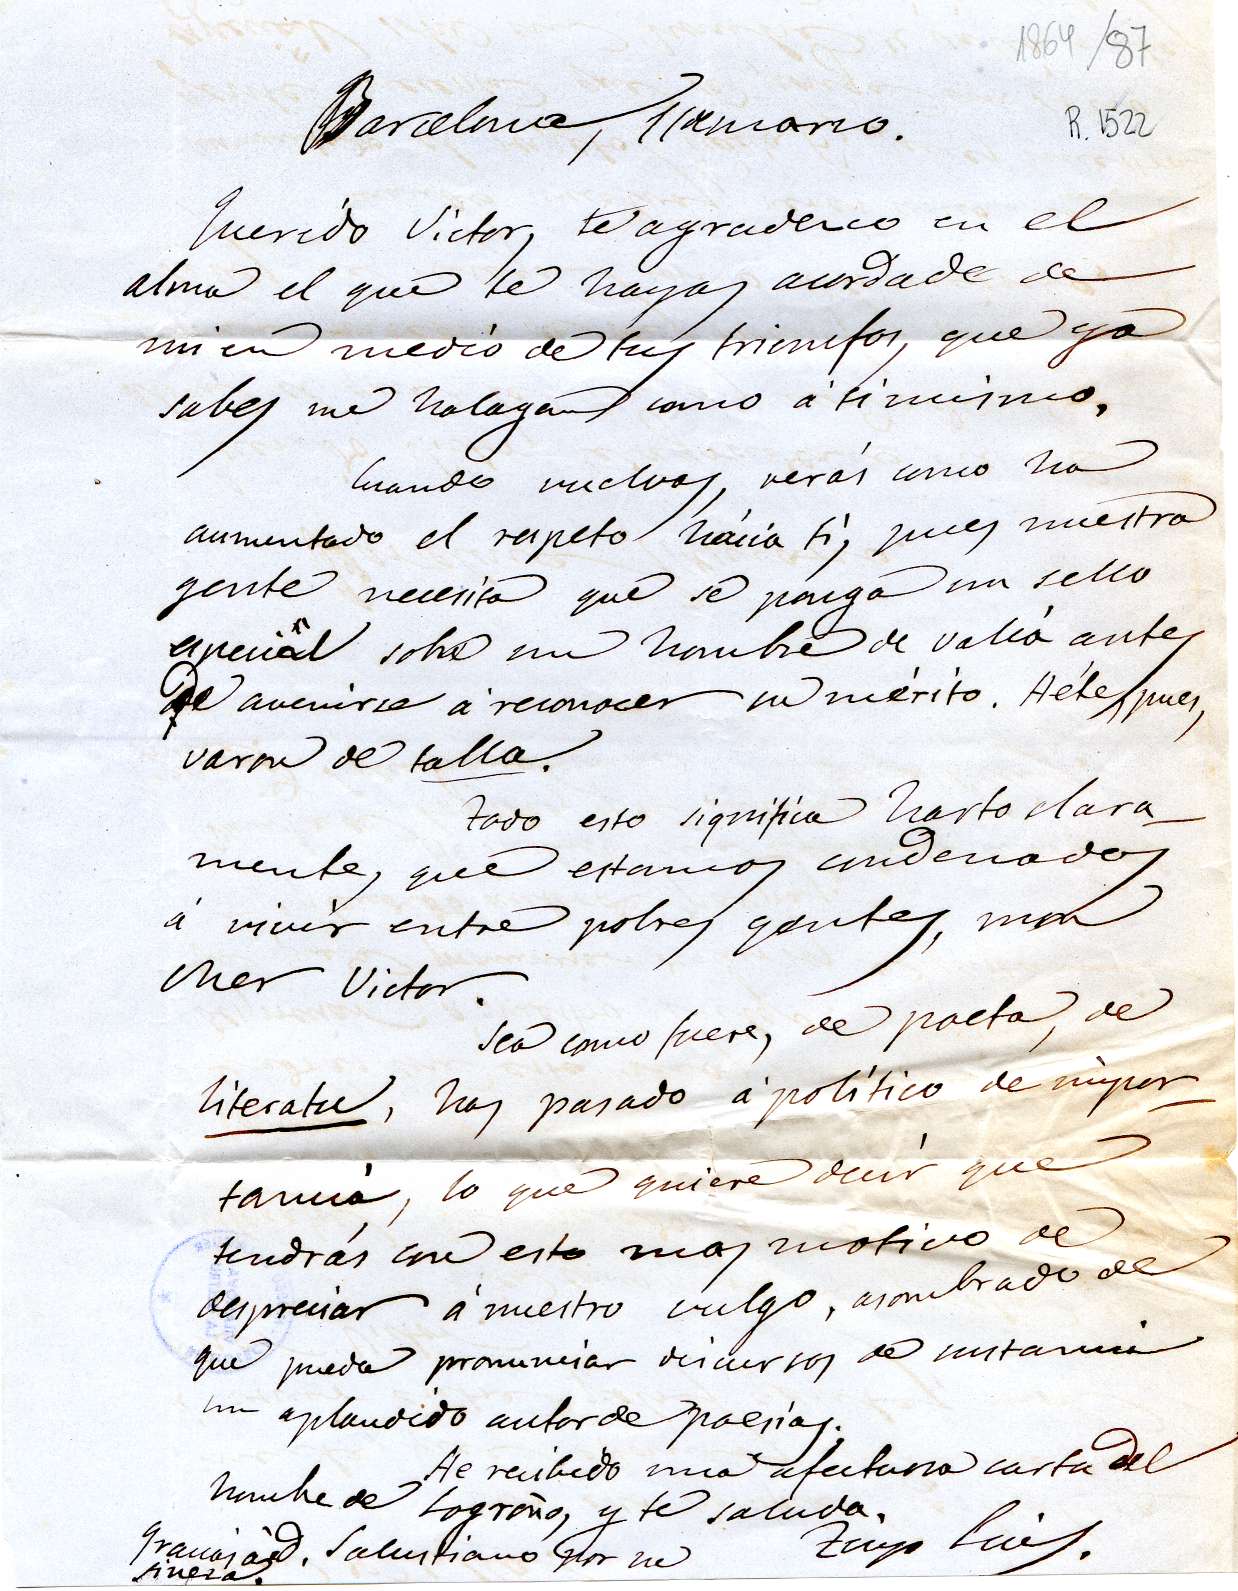 1864/87
R. 1522
Barcelona, 11 de marzo.
Querido Victor, te agradezco en el
alma el que te hayas acordade de
mi en medio de tus triunfos, que ya
sabes me halagan como á ti mismo.
Cuando vuelvas, verás como ha
aumentado el respeto hácia ti, pues nuestra
gente necesita que se ponga un sello
especial sobre un hombre de valía antes
de avenirse á reconocer su mérito. Héte, pues,
varon de talla.
Todo esto significa harto clara-
mente, que estamos condenados
á vivir entre pobres gentes, mon
cher Victor.
Sea como fuere, de poeta, de
literatu, has pasado á político de impor-
tancia, lo que quiere decir que
tendrás con esto mas motivo de
despreciar á nuestro vulgo, asombrado de
que pueda pronunciar discursos de sustancia
un aplaudido autor de poesias.
He recibido una afectuosa carta del
hombre de Logroño, y te saluda.
Gracias á D. Salustiano por su
fineza.
Tuyo Luis.